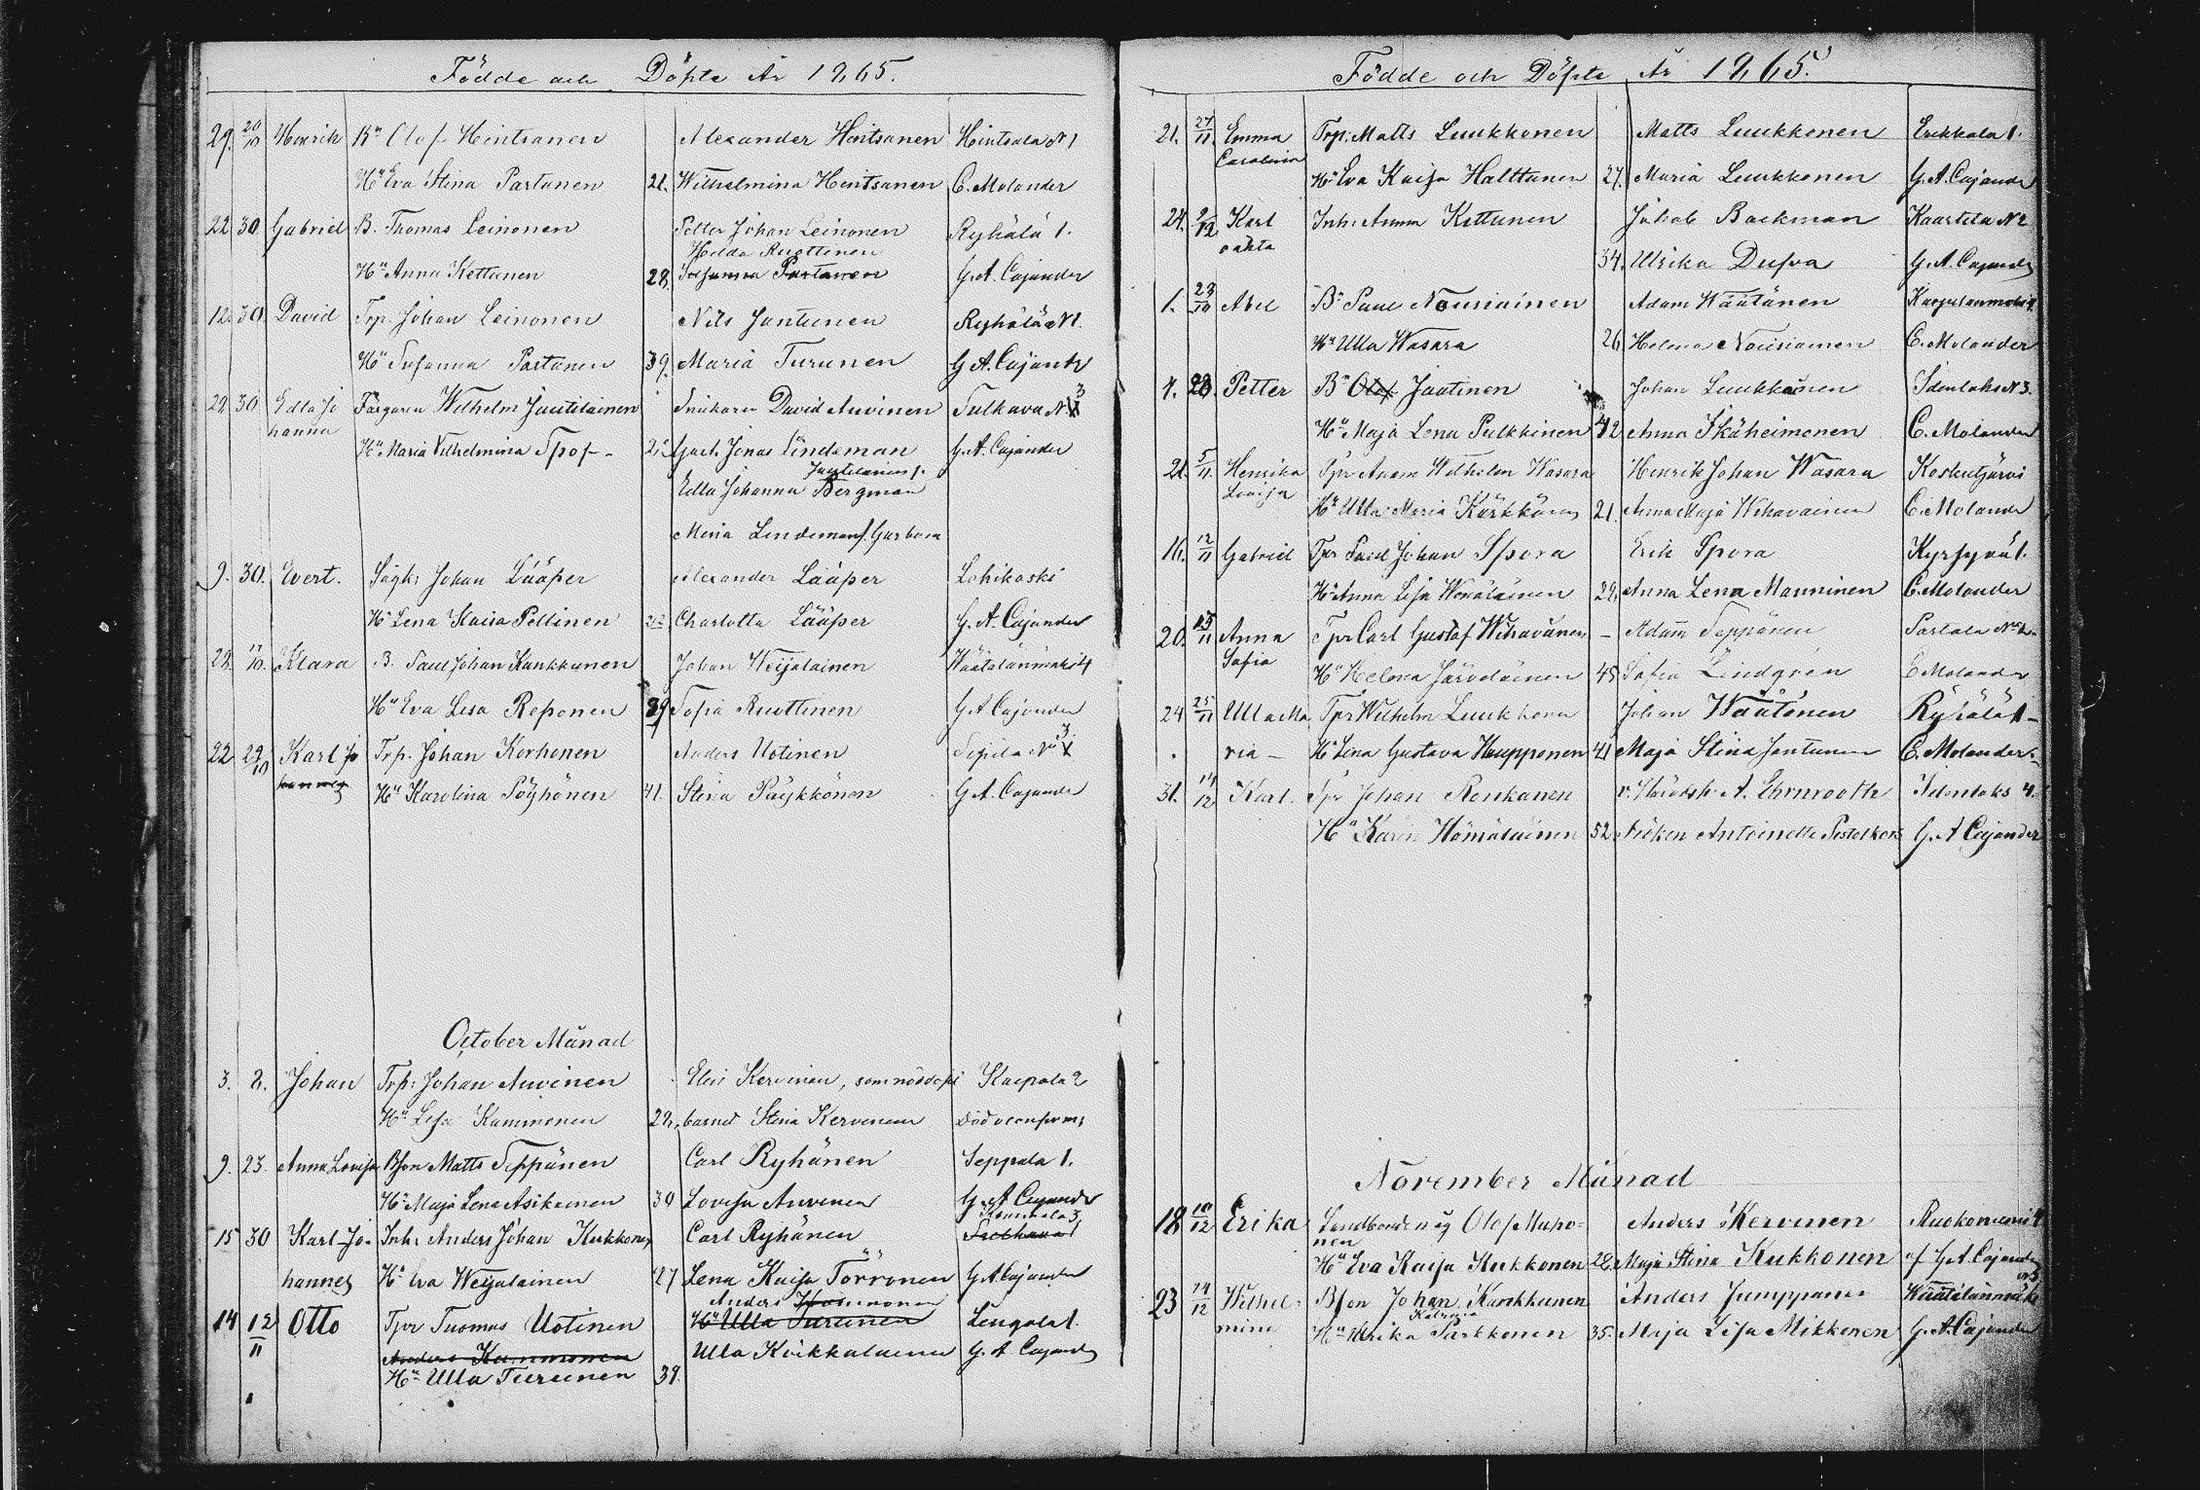 Födde och Döpte År 1865.
29. 20/10 Henrik Bn Olof Hintsanen Alexander Hintsanen Hintsala N 1
Hu Eva Stina Partanen 21. Wilhelmina Hintsanen C. Molander
22 30 Gabriel B. Thomas Leinonen Petter Johan Leinonen Ryhälä 1.
Helda Ruottinen
Hu Anna Kettunen 28. Susanna Partanen G. A. Cajander
12. 30. David Trp. Johan Leinonen Nils Jantunen Ryhälä N 1.
Hu Susanna Partanen 39. Maria Turunen G. A. Cajander
29. 30. Edla Jo Färgaren Wilhelm Juutilainen Snickaren David Auvinen Sulkava N 3
hanna
Hu Maria Vilhelmina Spof Garf. Jonas Lindeman G. A. Cajander
Juutilainens f.
Edla Johanna Bergman
Mina Lindeman f. Garbom
9. 30. Evert. Sågk: Johan Lääper Alexander Lääper Lohikoski
Hu Lena Kaisa Pellinen 22 Charlotta Lääper G. A. Cajander
28. Klara B. Paul Johan Kankkunen Johan Weijalainen Wäätälänmäki 4
Hu Eva Lisa Reponen 39 Sofia Ruottinen G. A. Cajander
22 29/10 Karl Jo Trp. Johan Korhonen Anders Uotinen N 3
hannes
Hu Karolina Pöyhönen 41. Stina Päykkönen G. A. Cajander
October Månad
3. 8. Johan Trp: Johan Auvinen Elis Kervinen, som nöddöpt Kaipala 2
Hu Lisa Kammonen 22. barnet Stina Kervinen
9. 23. Anna Lovisa Bson Matts Seppänen Carl Ryhänen Seppala 1.
Hu Maja Lena Asikainen 30 Lovisa Auvinen G. A. Cajander
15 30 Karl Jo- Inh: Anders Johan Kukkonen Carl Ryhänen
hannes Hu Eva Weijalainen 27 Lena Kaisa Törrönen G. A. Cajander
Anders Kammonen
14 12/11 Otto Tpr Tuomas Uotinen Hu Ulla Turunen Lengola 1.
Anders Kammonen Ulla Koikkalainen G. A. Cajander
Hu Ulla Turunen 39.
Födde och Döpte År 1865.
21. 27/11. Emma Trp. Matts Luukkonen Matts Luukkonen Erikkala 1.
Carolina
Hu Eva Kaisa Halttunen 27. Maria Luukkonen G. A. Cajander
24. 2/12 Karl Inh: Anna Kettunen Jakob Backman Kaartila N 2
oäkta
34. Ulrika Dufva G. A. Cajander
1. 23/10 Abel Bn Paul Nousiainen Adam Wäätänen
Hu Ulla Wasara 26 Helena Nousiainen C. Molander
4. 28. Petter Bn Olof Jaatinen Johan Luukkainen Idenlaks N 3.
Hu Maja Lena Pulkkinen 42 Anna Ikäheimonen C. Molander
21. 5/11. Henrika Tpr Adam Wilhelm Wasara Henrik Johan Wasara Koskutjärvi
Lovisa
Hu Ulla Maria Kärkkäinen 21. Anna Maja Wihavainen C. Molander
16. 12/11 Gabriel Tpr Paul Johan Spora Erik Spora Kyrsyä 1.
Hu Anna Lisa Wenäläinen 29. Anna Lena Manninen C. Molander
20. 15/11 Anna Tpr Carl Gustaf Wihavainen Adam Seppänen Partala N
Sofia
Hu Helena Järveläinen 45 Sofia Lindgrén C. Molander
24 25/11 Ulla Ma Tpr Wilhelm Luukkonen Johan Wäätänen Ryhälä 1
ria Hu Lena Gustava Huupponen 41 Maja Stina Jantunen C. Molander
31. 14/12 Karl. Tpr Johan Ronkanen v. Häradsh. A. Ehrnrooth Idenlaks 4.
Hu Karin Hämäläinen 52. Fröken Antoinette Pistolkors G. A. Cajander
November Månad
18 10/12 Erika Landbonden åg Olof Muho= Anders Kervinen
nen
Hu Eva Kaisa Kukkonen 28. Maja Stina Kukkonen af G. A. Cajander
23 14/12 Wilhel= Bson Johan Kankkunen Anders Jumppanen Wäätälänmäki
mina Hu Ulrika Parkkonen 35. Maja Lisa Mikkonen G. A. Cajander